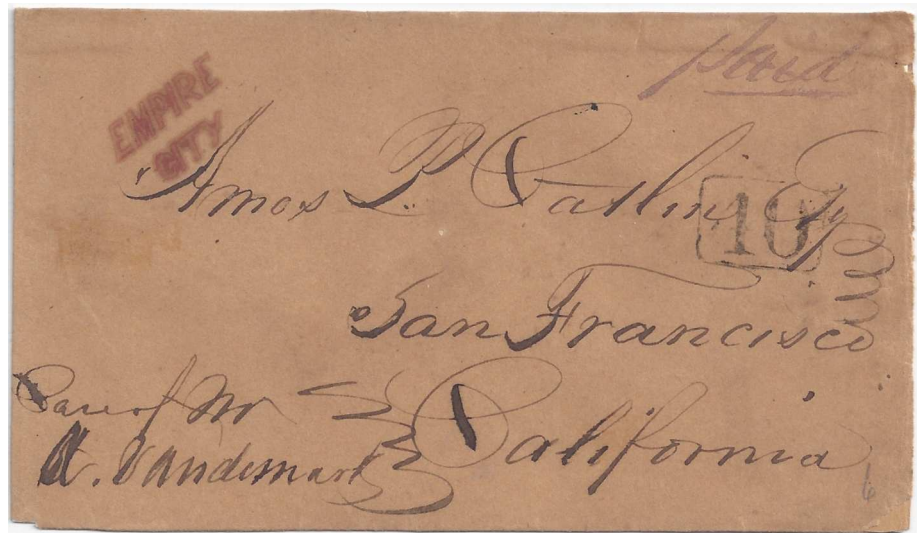 EMPIRE
CITY
paid
Amos P. Catlin Esq
10
San Francisco
California
Care of Mr
A. Vandemark
6